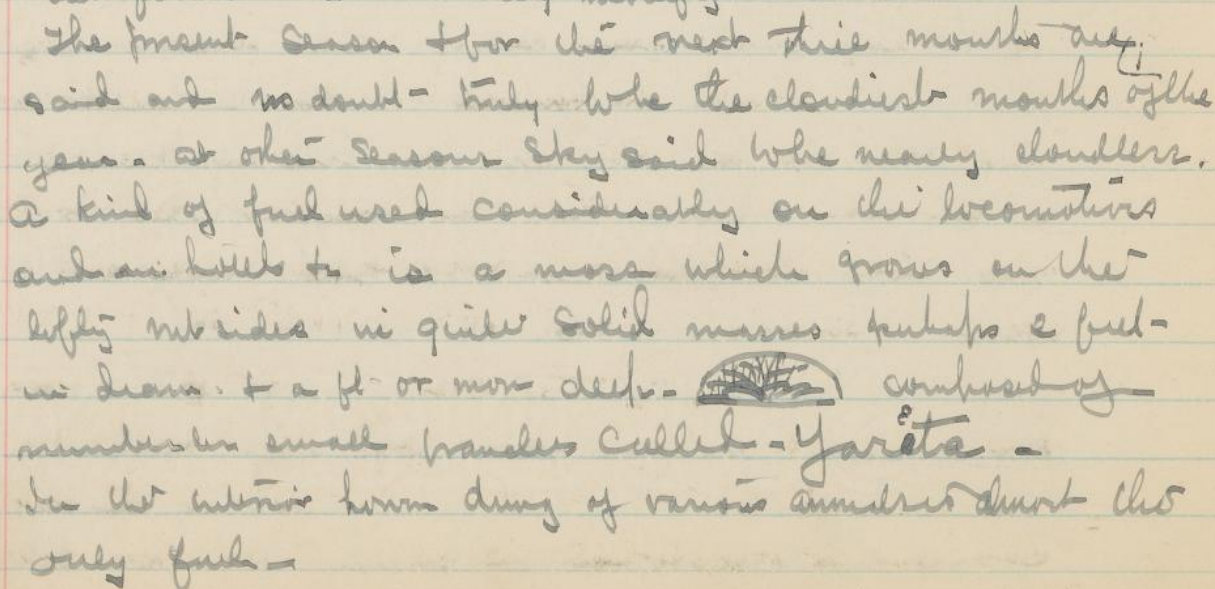 The present season & for the next three months are,
said and no doubt - truly to be the cloudiest months of the
year. at other seasons sky said to be nearly cloudless.
A kind of fuel used considerably on the locomotives
and in hotels &c is a moss which grows on the
lofty mt sides in quite solid masses perhaps 2 feet -
in diam. & a ft or more deep - composed of
numberless small branches called - Yareta -
In the interior however dung of various animals is almost the
only fuel -